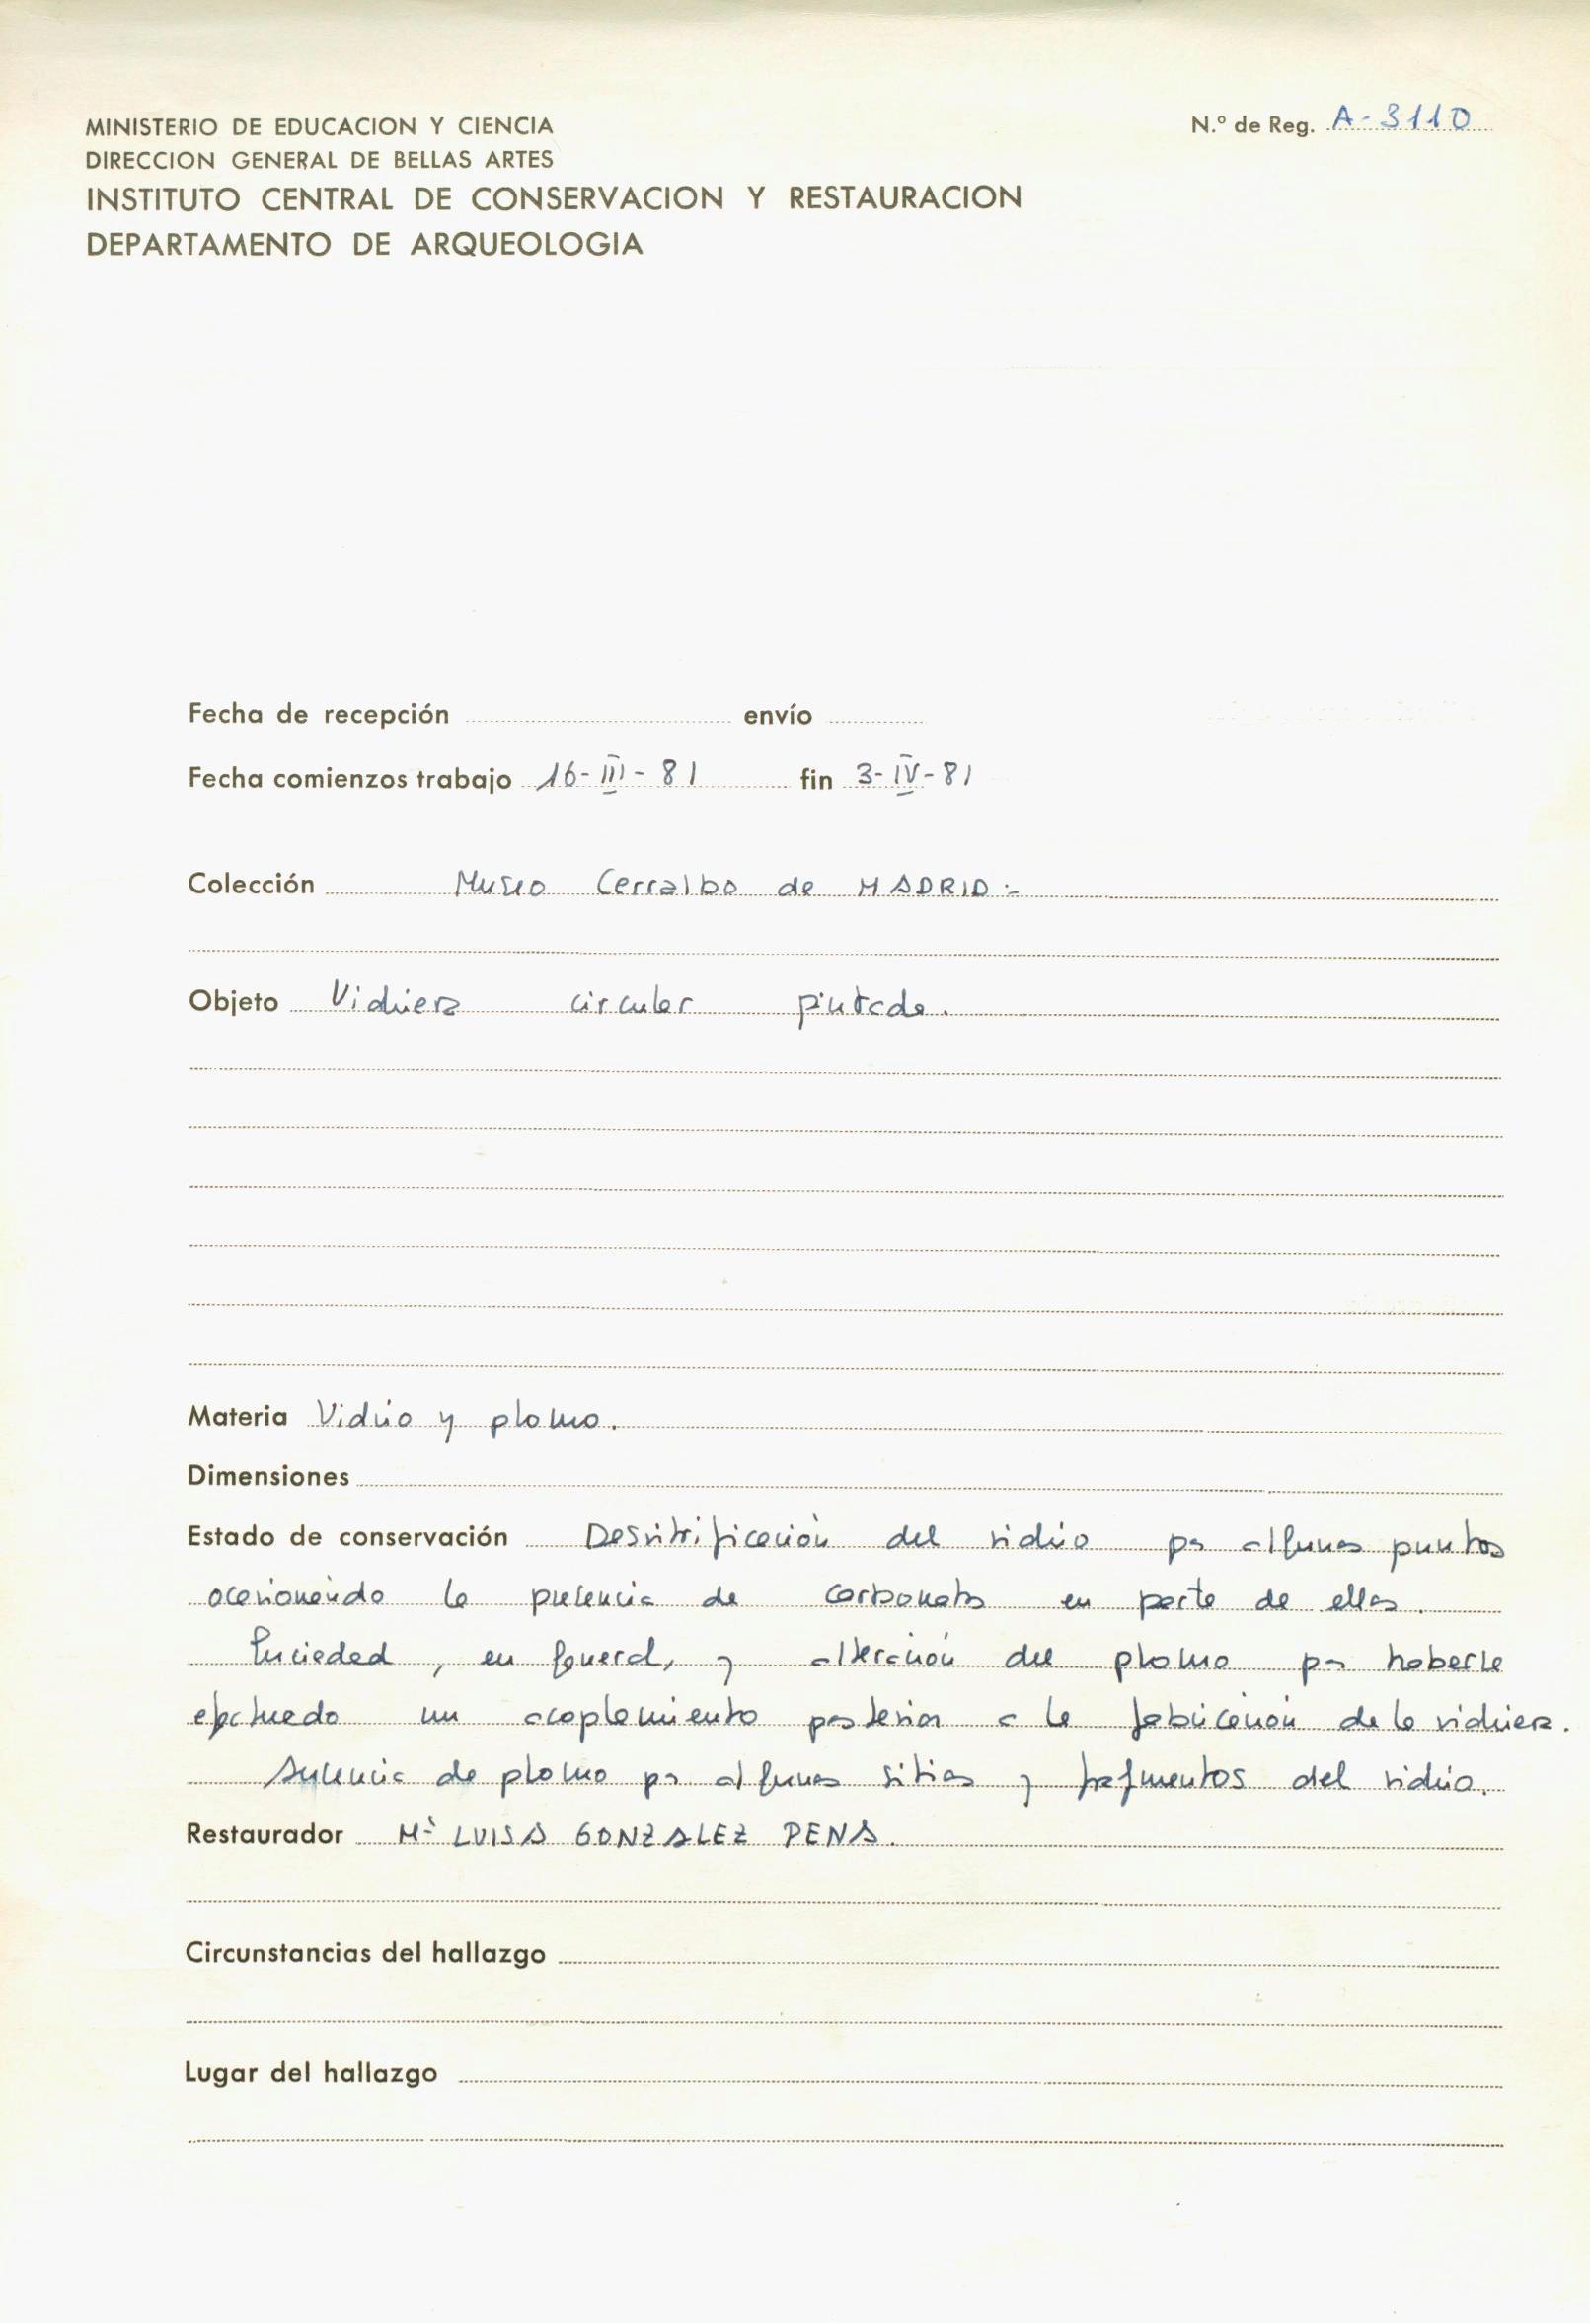 MINISTERIO DE EDUCACION Y CIENCIA
DIRECCION GENERAL DE BELLAS ARTES
INSTITUTO CENTRAL DE CONSERVACION Y RESTAURACION
DEPARTAMENTO DE ARQUEOLOGIA
N.º de Reg. A-3110
Fecha de recepción envío
Fecha comienzos trabajo 16-III-81 fin 3-IV-81
Colección Museo Cerralbo de MADRID.-
Objeto Vidriera circular pintada.
Materia Vidrio y plomo.
Dimensiones
Estado de conservación Desvitrificación del vidrio por algunos puntos
ocasionando la presencia de carbonatos en parte de ellos.
Suciedad, en general, y alteración del plomo por haberle
efectuado un acoplamiento posterior a la fabricación de la vidriera.
Ausencia de plomo por algunos sitios y fragmentos del vidrio.
Restaurador Mª LUISA GONZALEZ PENA.
Circunstancias del hallazgo
Lugar del hallazgo